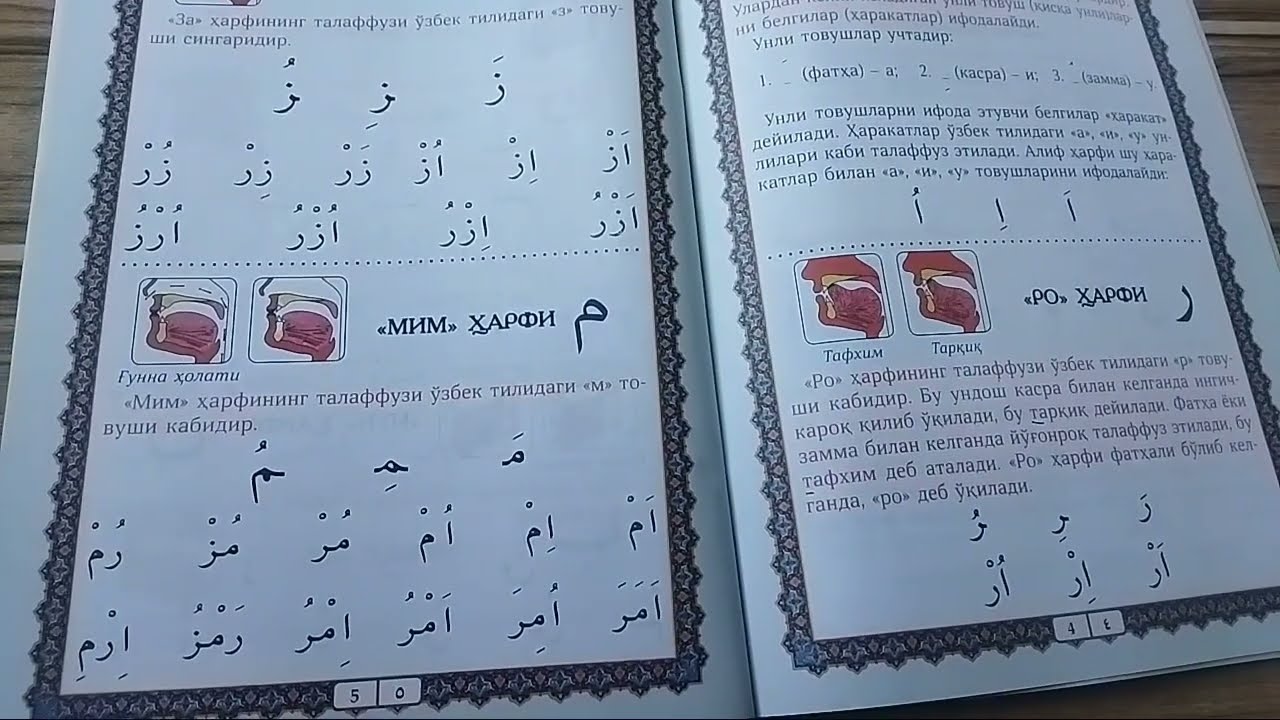 Улардан унли товуш (қисқа унли)лар-
ни белгилар (ҳаракатлар) ифодалайди.
Унли товушлар учтадир:
1. َ (фатҳа) – а; 2. ِ (касра) – и; 3. ُ (замма) – у.
Унли товушларни ифода этувчи белгилар «ҳаракат»
дейилади. Ҳаракатлар ўзбек тилидаги «а», «и», «у» ун-
лилари каби талаффуз этилади. Алиф ҳарфи шу ҳара-
катлар билан «а», «и», «у» товушларини ифодалайди:
اَ اِ اُ
«РО» ҲАРФИ ر
Тафхим Тарқиқ
«Ро» ҳарфининг талаффузи ўзбек тилидаги «р» това-
ши кабидир. Бу ундош касра билан келганда ингич-
кароқ қилиб ўқилади, бу тарқиқ дейилади. Фатҳа ёки
замма билан келганда йўғонроқ талаффуз этилади, бу
тафхим деб аталади. «Ро» ҳарфи фатҳали бўлиб кел-
ганда, «ро» деб ўқилади.
رَ رِ رُ
اَرْ اِرْ اُرْ
4 ٤
«За» ҳарфининг талаффузи ўзбек тилидаги «з» тову-
ши сингаридир.
زَ زِ زُ
اَزْ اِزْ اُزْ زَرْ زِرْ زُرْ
اَزْرُ اِزْرُ اُزْرُ اُرْزُ
«МИМ» ҲАРФИ م
Ғунна ҳолати
«Мим» ҳарфининг талаффузи ўзбек тилидаги «м» то-
вуши кабидир.
مَ مِ مُ
اَمْ اِمْ اُمْ مُرْ مُزْ رُمْ
اَمَرَ اُمِرَ اَمْرُ اِمْرُ رَمْزُ اِرْمِ
5 ٥